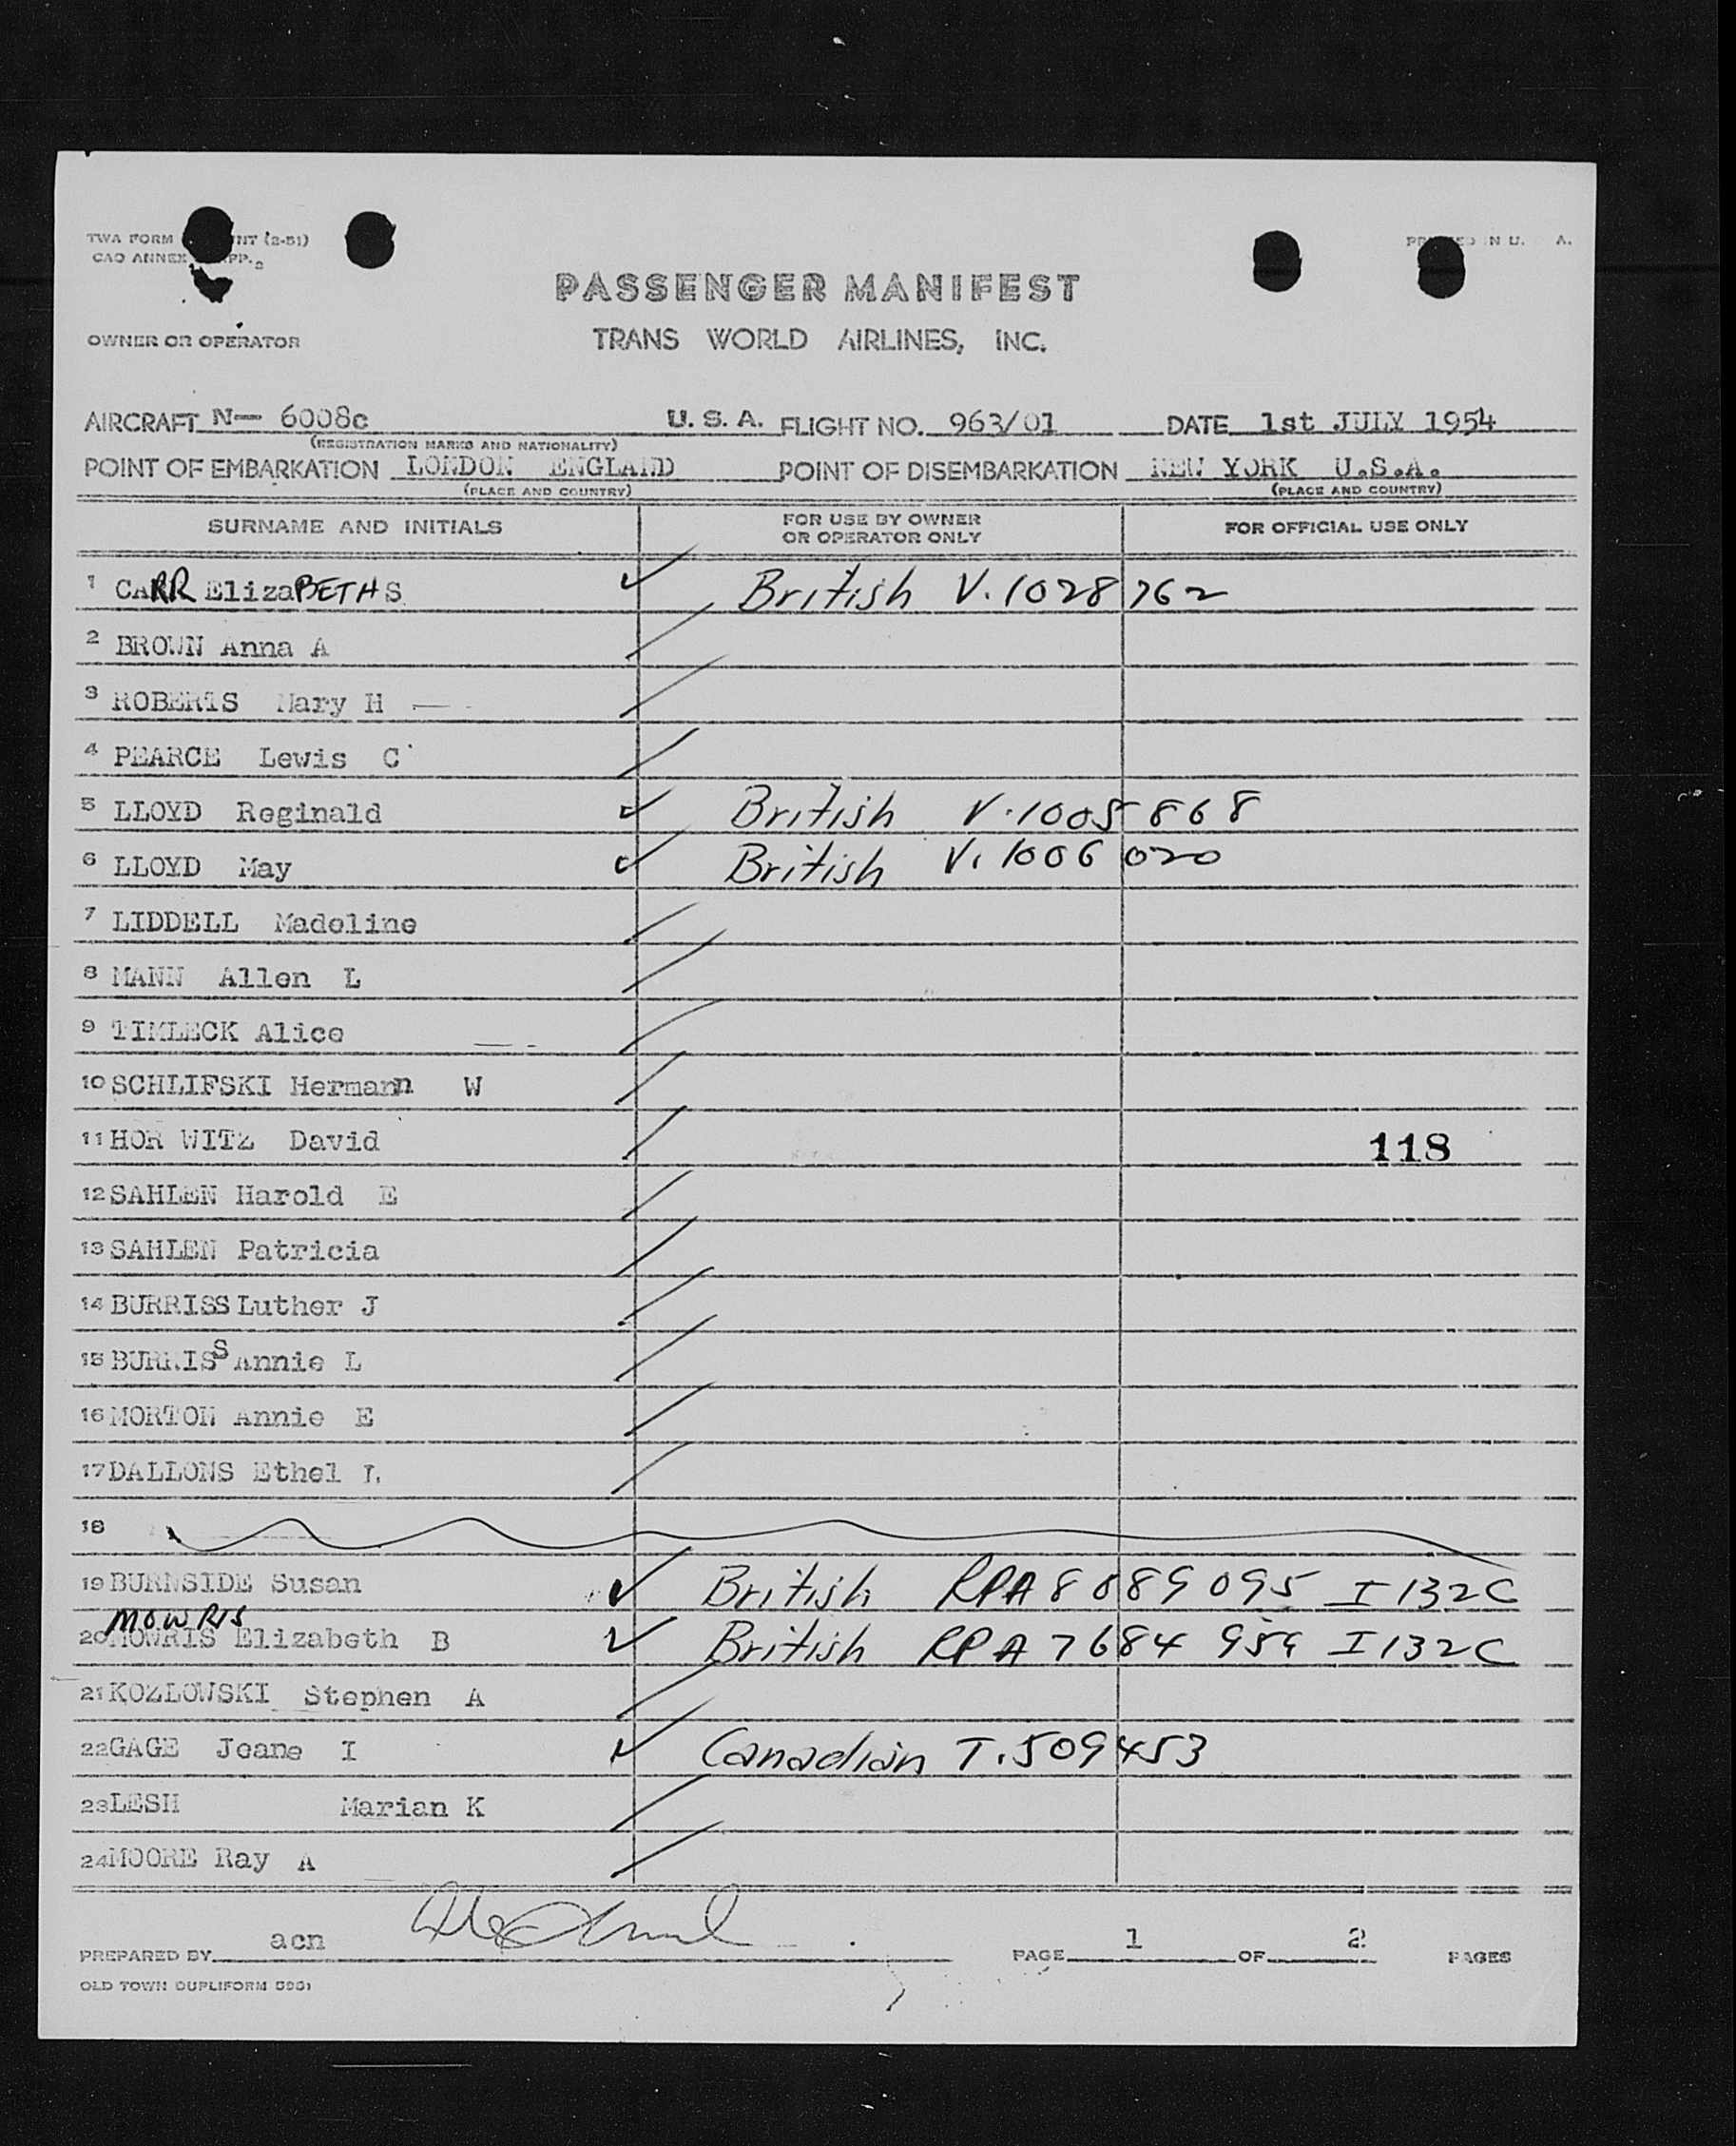 TWA FORM NT (2-51) PRINTED IN U. A.
CAO ANNEX APP. 2
PASSENGER MANIFEST
OWNER OR OPERATOR TRANS WORLD AIRLINES, INC.
AIRCRAFT N— 6008c U. S. A. FLIGHT NO. 963/01 DATE 1st JULY 1954
(REGISTRATION MARKS AND NATIONALITY)
POINT OF EMBARKATION LONDON ENGLAND POINT OF DISEMBARKATION NEW YORK U.S.A.
(PLACE AND COUNTRY) (PLACE AND COUNTRY)
SURNAME AND INITIALS FOR USE BY OWNER OR OPERATOR ONLY FOR OFFICIAL USE ONLY
1 CARR ElizaBETH S British V.1028762
2 BROWN Anna A
3 ROBERTS Mary H
4 PEARCE Lewis C
5 LLOYD Reginald British V.1005868
6 LLOYD May British V.1006020
7 LIDDELL Madeline
8 MANN Allen L
9 TIMLECK Alice
10 SCHLIFSKI Hermann W
11 HOR WITZ David 118
12 SAHLEN Harold E
13 SAHLEN Patricia
14 BURRISS Luther J
15 BURRISS Annie L
16 MORTON Annie E
17 DALLONS Ethel L
18
19 BURNSIDE Susan British RPA 8089095 I 132C
MOWRIS
20 MOWRIS Elizabeth B British RPA 7684959 I 132C
21 KOZLOWSKI Stephen A
22 GAGE Jeane I Canadian T.509453
23 LESH Marian K
24 MOORE Ray A
PREPARED BY acn PAGE 1 OF 2 PAGES
OLD TOWN DUPLIFORM